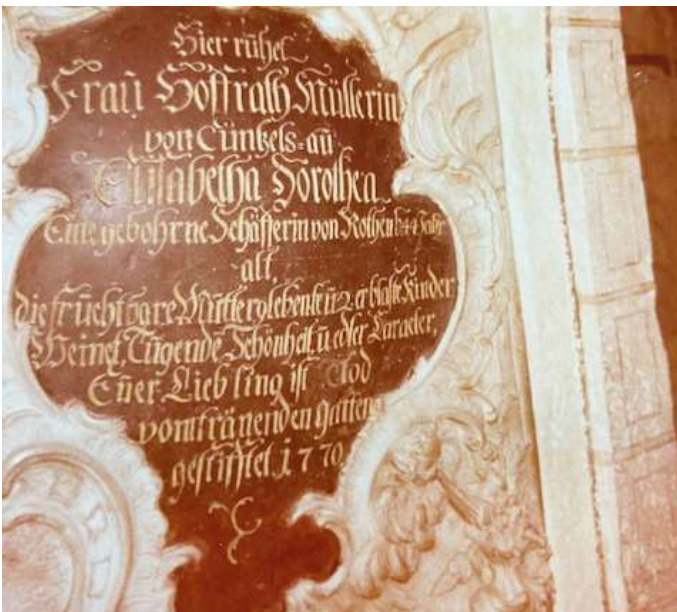 Hier rühet
Fraŭ Hoffrath Müllerin
von Cüntzels=aŭ
Elisabetha Dorothea
Eine gebohrne Schäfferin von Rothenb: 44 Jahr
alt,
die früchtbare Mŭtter 9 lebente ŭ: 2 erblaste Kinder
Weinet, Tŭgende Schönheit, ŭ. edler Caracter,
Eŭer Liebling ist Tod
vom tränenden gatten
gestifftet 1770